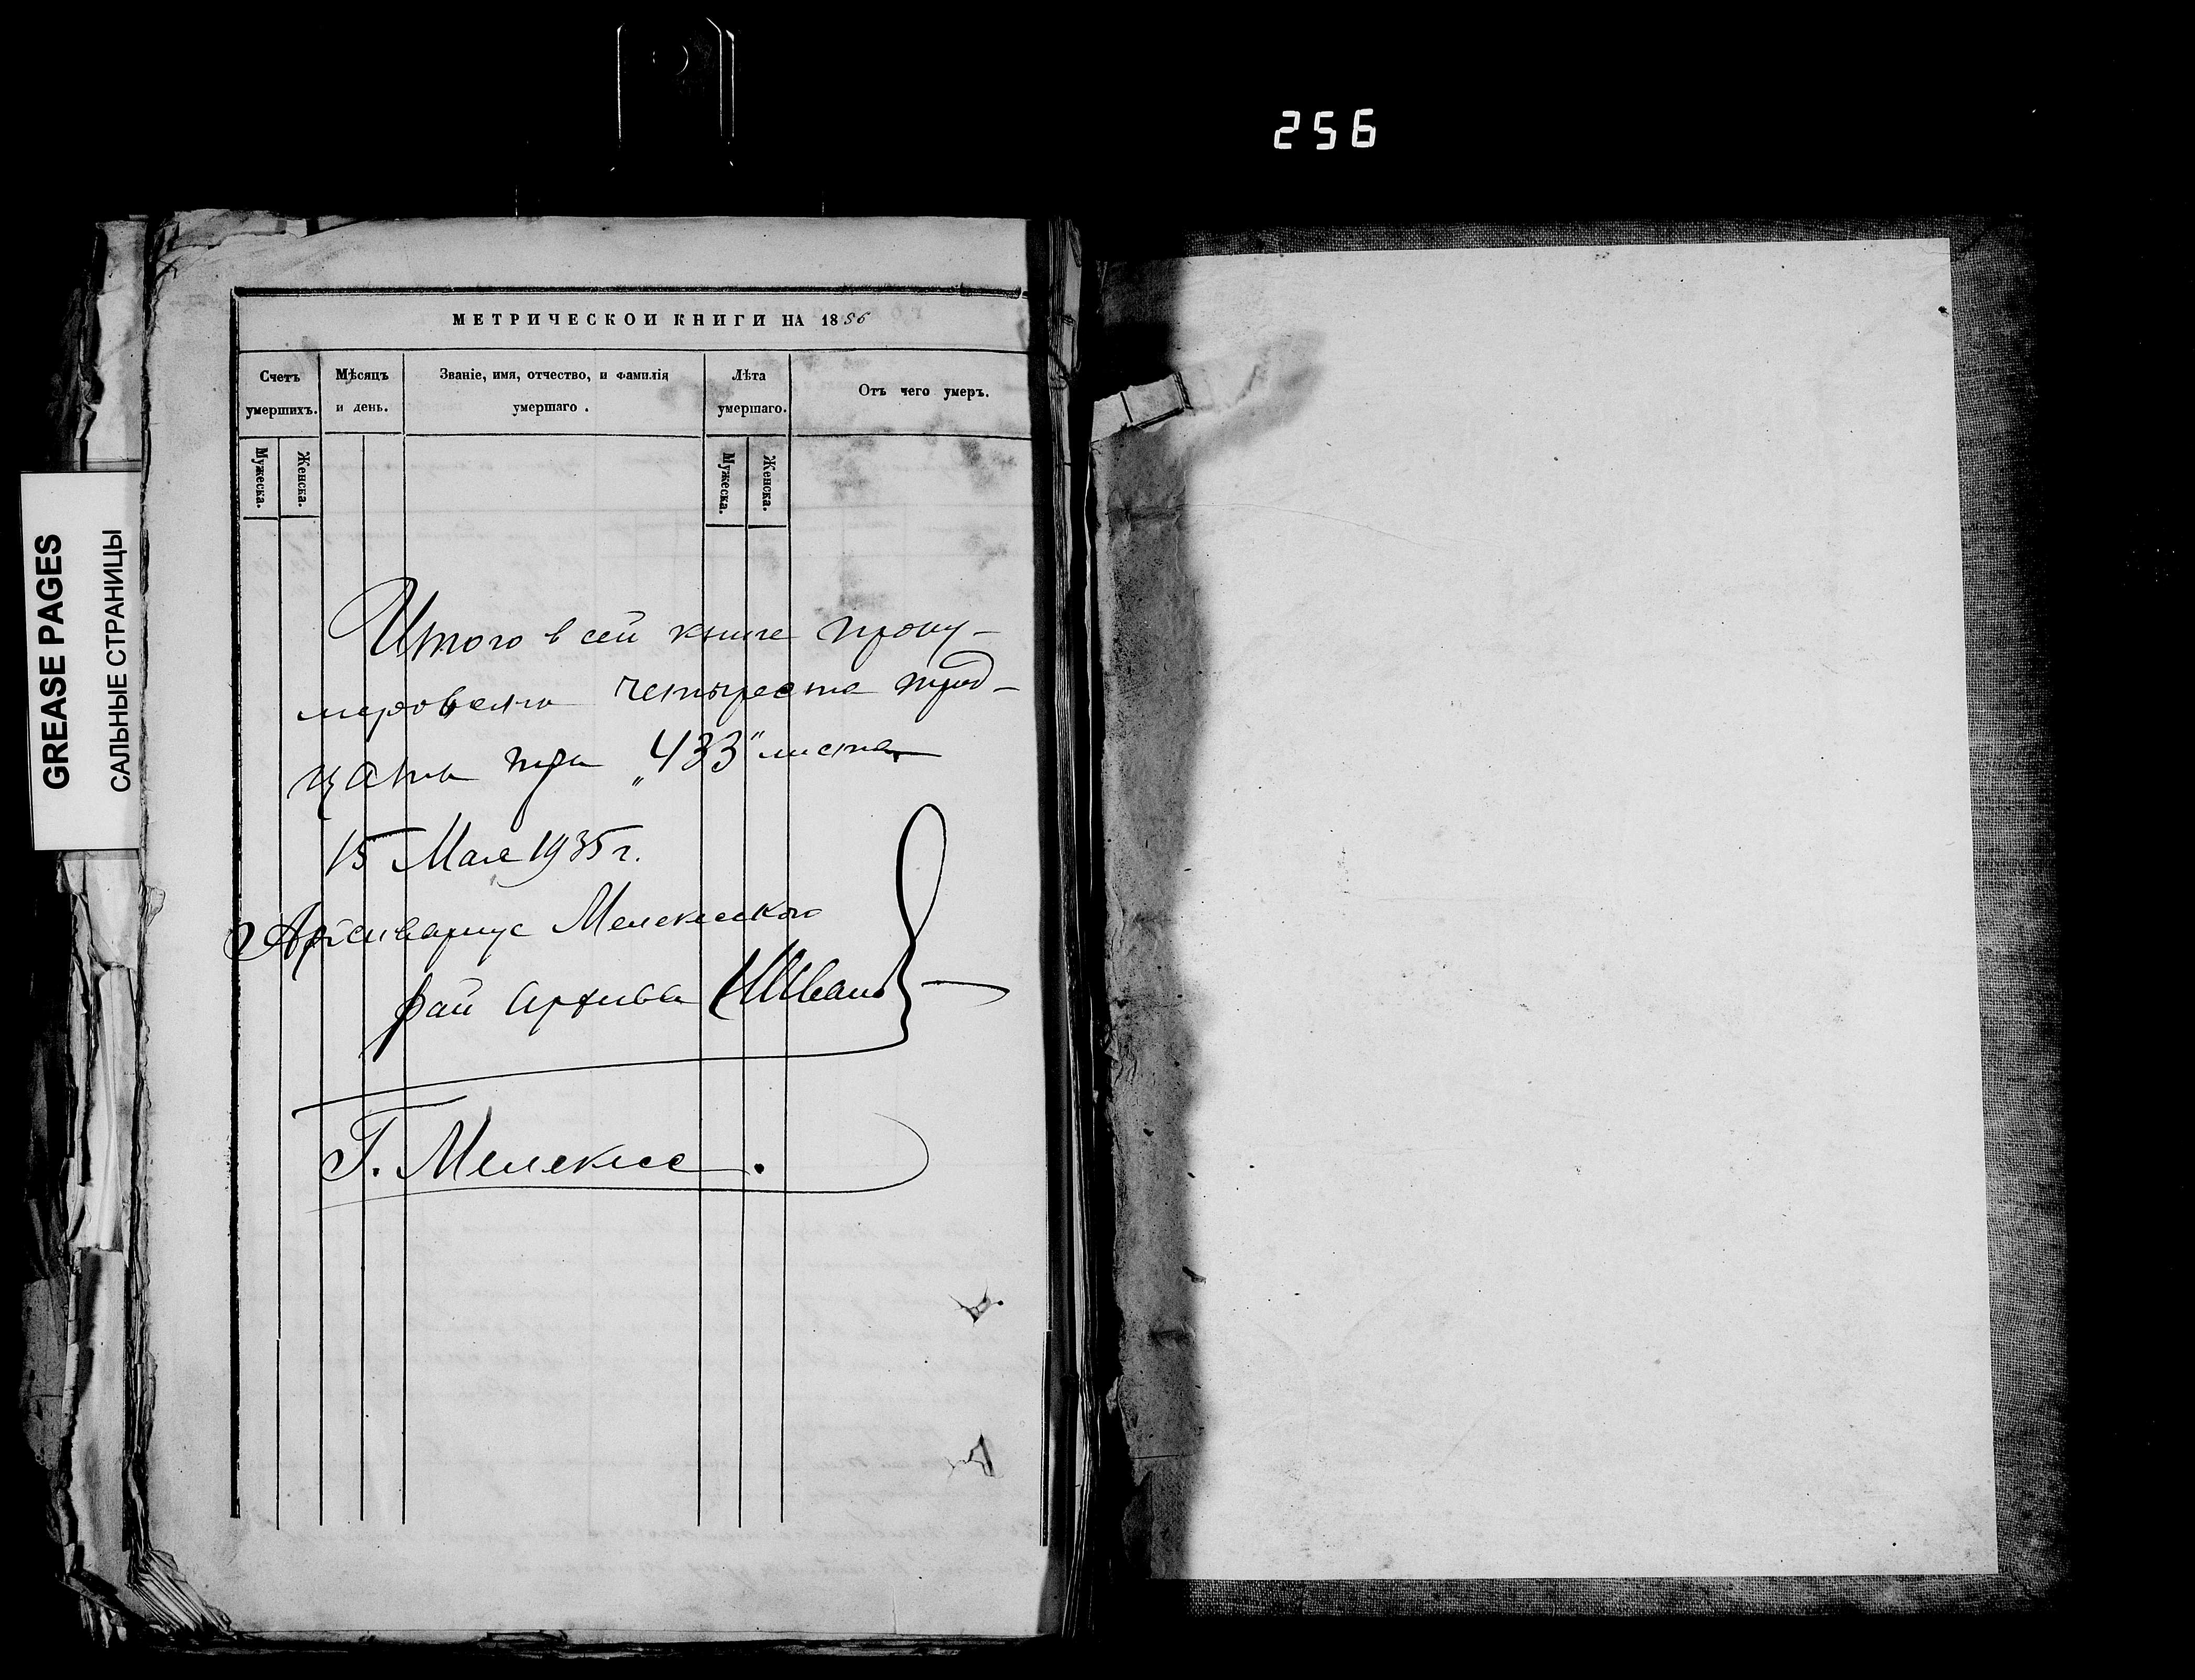 256
GREASE PAGES
САЛЬНЫЕ СТРАНИЦЫ
МЕТРИЧЕСКОИ КНИГИ НА 1856
Счетъ умершихъ.
Мужеска.
Женска.
Мѣсяцъ и день.
Званіе, имя, отчество, и фамилія умершаго.
Лѣта умершаго.
Мужеска.
Женска.
Отъ чего умеръ.
Итого в сей книге прону-
меровано четыреста трид-
цать три „433" листа
15 Мая 1935 г.
Архивариус Мелекесского
рай архива
Г. Мелекесс.